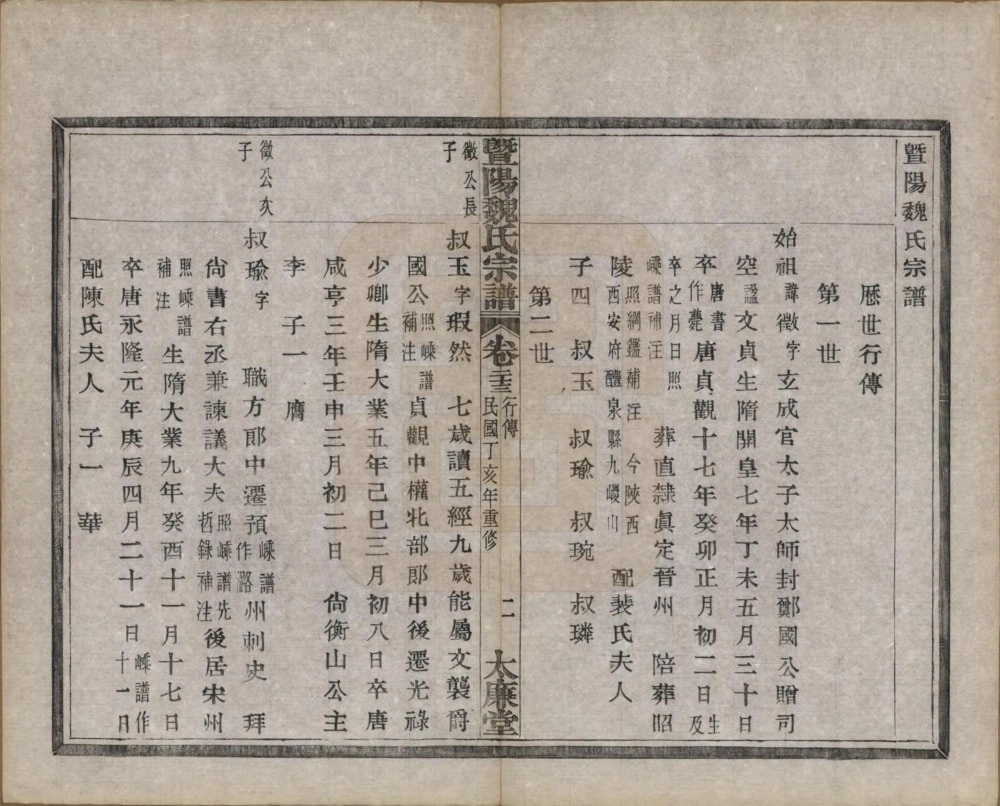 暨陽魏氏宗譜
歷世行傳
第一世
始祖諱徵字玄成官太子太師封鄭國公贈司
空謚文貞生隋開皇七年丁未五月三十日
卒唐書作薨唐貞觀十七年癸卯正月初二日生及
卒之月日照嵊譜補注葬直隸眞定晉州陪葬昭
陵照綱鑑補注今陝西西安府醴泉縣九嵕山配裴氏夫人
子四叔玉叔瑜叔琬叔璘
第二世
暨陽魏氏宗譜卷二三行傳民國丁亥年重修二大廉堂
徵公長子
叔玉字瑕然七歲讀五經九歲能屬文襲爵
國公照嵊譜補注貞觀中權北部郎中後遷光祿
少卿生隋大業五年己巳三月初八日卒唐
咸亨三年壬申三月初二日尙衡山公主
李子一膺
徵公次子
叔瑜字職方郎中遷預嵊譜作潞州刺史拜
尙書右丞兼諫議大夫照嵊譜先哲錄補注後居宋州
照嵊譜補注生隋大業九年癸酉十一月十七日
卒唐永隆元年庚辰四月二十一日嵊譜作十一日
配陳氏夫人子一華